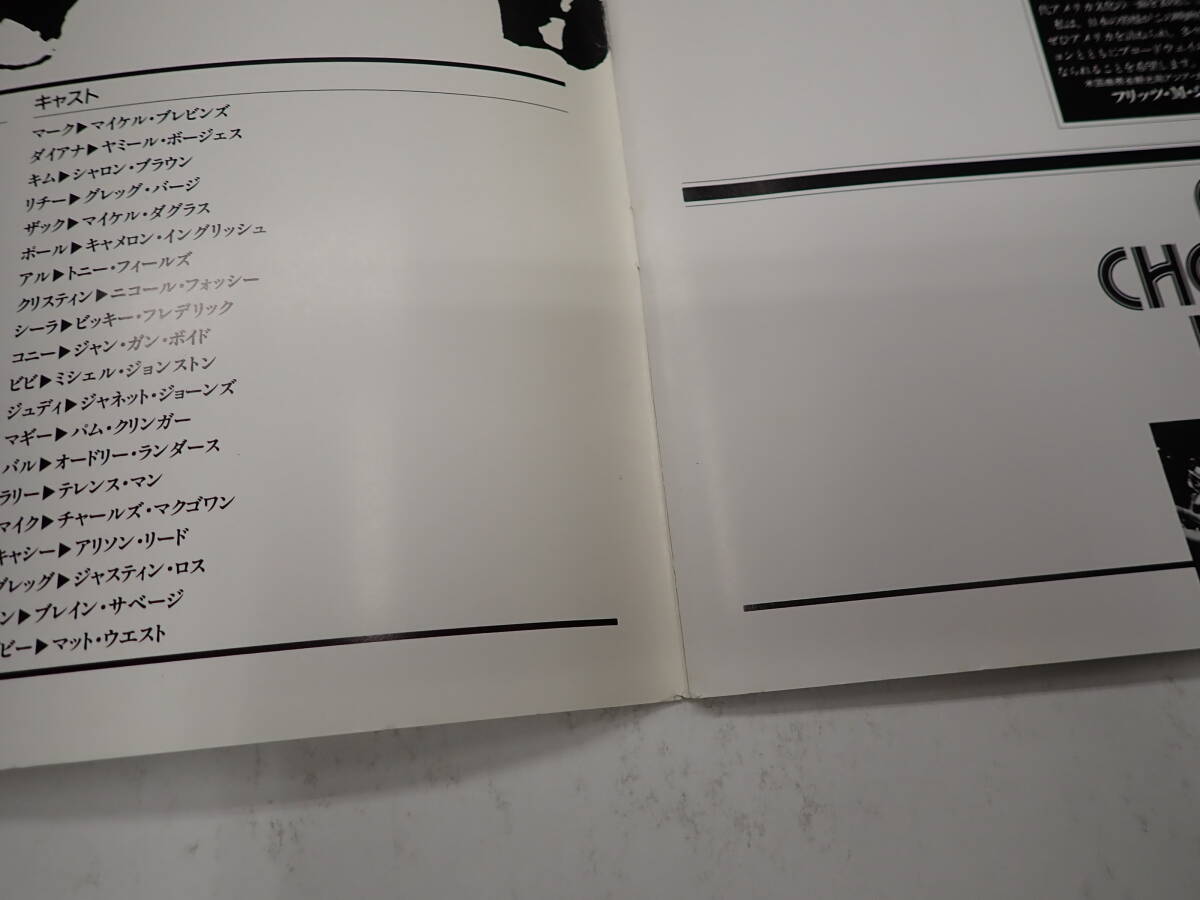 キャスト
マーク▶マイケル・ブレビンズ
ダイアナ▶ヤミール・ボージェス
キム▶シャロン・ブラウン
リチー▶グレッグ・バージ
ザック▶マイケル・ダグラス
ポール▶キャメロン・イングリッシュ
アル▶トニー・フィールズ
クリスティン▶ニコール・フォッシー
シーラ▶ビッキー・フレデリック
コニー▶ジャン・ガン・ボイド
ビビ▶ミシェル・ジョンストン
ジュディ▶ジャネット・ジョーンズ
マギー▶パム・クリンガー
バル▶オードリー・ランダース
ラリー▶テレンス・マン
マイク▶チャールズ・マクゴワン
キャシー▶アリソン・リード
グレッグ▶ジャスティン・ロス
ン▶ブレイン・サベージ
ビー▶マット・ウエスト
ぜひアメリカを訪ねられ、
ョンとともにブロードウェイ
なられることを希望します。
フリッツ・M・
CHO